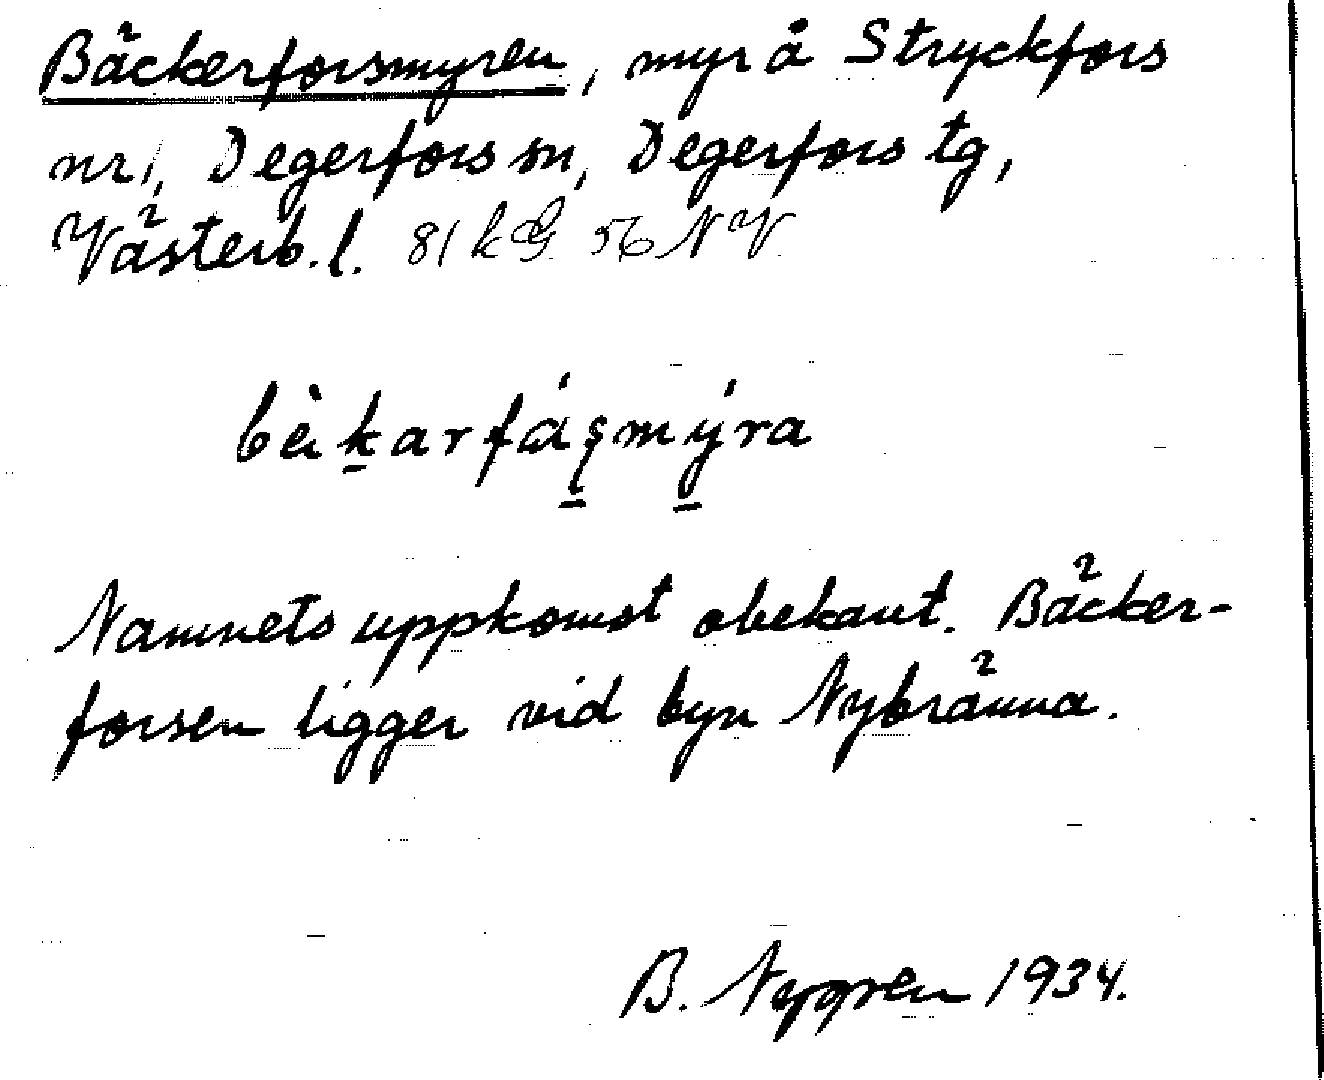 Bäckerforsmyren, myr å Stryckfors
nr 1, Degerfors sn, Degerfors tg,
Västerb. l. 81 k G 56 NV
bèkarfáşmýra
Namnets uppkomst obekant. Bäcker-
forsen ligger vid byn Nybränna.
B. Nygren 1934.